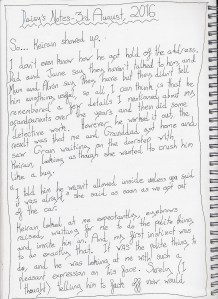 Daisy's Notes - 3rd August 2016
So... Keiran showed up.
I don't even know how he got hold of the address.
Dad and June say they haven't talked to him, and
Mum and Russ say they have but they didn't tell
him anything useful, so all I can think is that he
remembered a few details I mentioned about my
grandparents over the years and then did some
detective work. However he worked it out, the
result was that me and Granddad got home and
saw Gran waiting on the doorstep with
Keiran, looking as though she wanted to crush him
like a bug.
"I told him he wasn't allowed inside unless you said
it was alright," she said as soon as we got out
of the car.
Keiran looked at me expectantly, eyebrows
raised, waiting for me to do the polite thing
and invite him in. And my first instinct was
to do exactly that. It was the polite thing to
do, and he was looking at me with such a
expression on his face. Surely (I
thought) telling him to fuck off now would